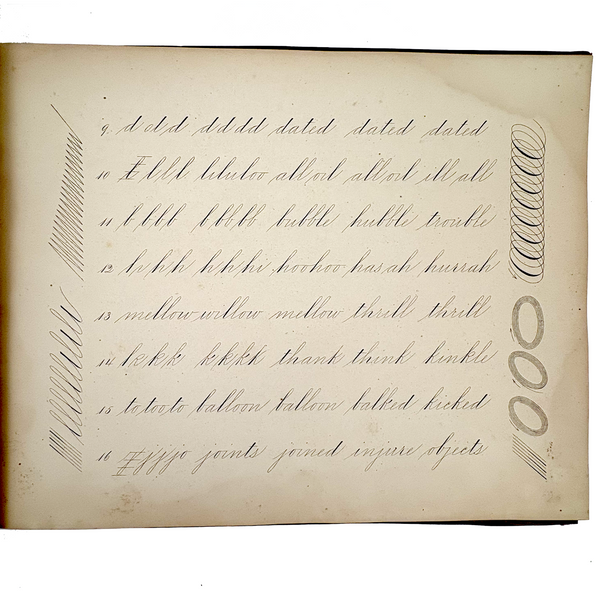 9 d d d d d d d dated dated dated
10 l l l lululoo all oil all oil ill all
11 b b b b b b b b bubble hubble trouble
12 h h h h h h hi hoohoo hasah hurrah
13 mellow willow mellow thrill thrill
14 k k k k k k k k thank think kinkle
15 to too to balloon balloon balked kicked
16 j j j jo joints joined injure objects